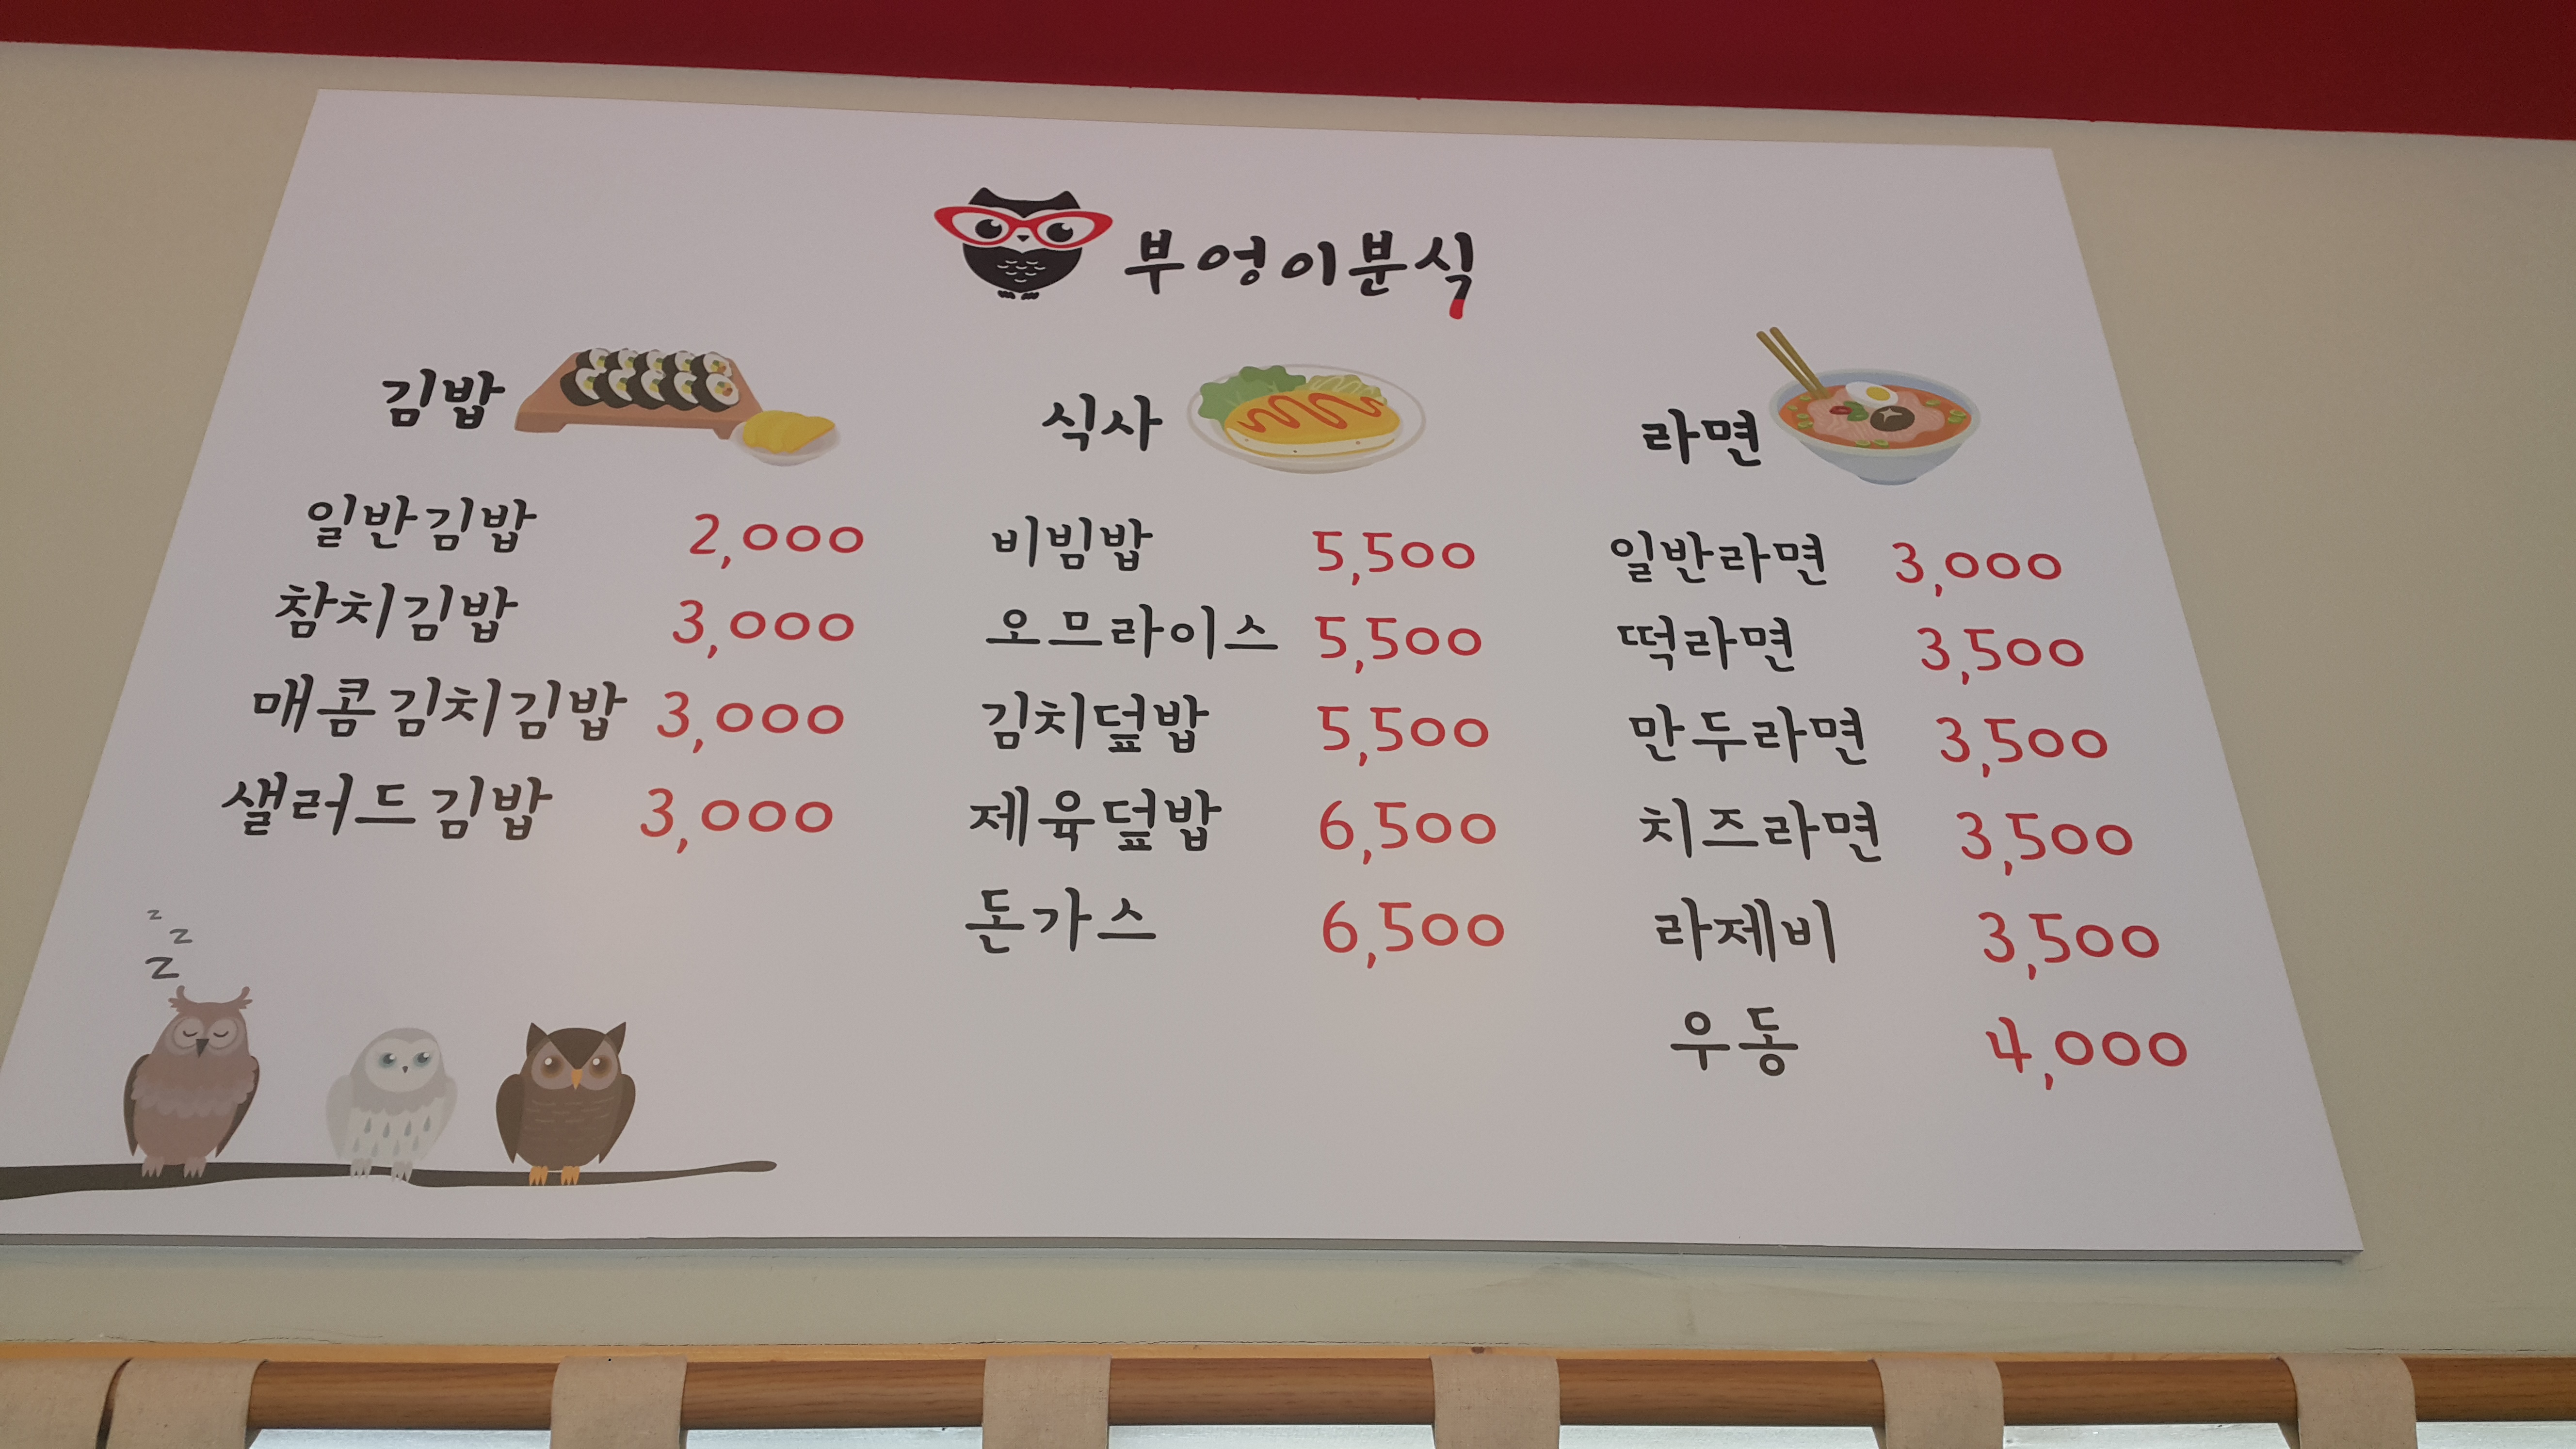 부엉이분식
김밥
일반김밥 2,000
참치김밥 3,000
매콤김치김밥 3,000
샐러드김밥 3,000
식사
비빔밥 5,500
오므라이스 5,500
김치덮밥 5,500
제육덮밥 6,500
돈가스 6,500
라면
일반라면 3,000
떡라면 3,500
만두라면 3,500
치즈라면 3,500
라제비 3,500
우동 4,000
z
z
z